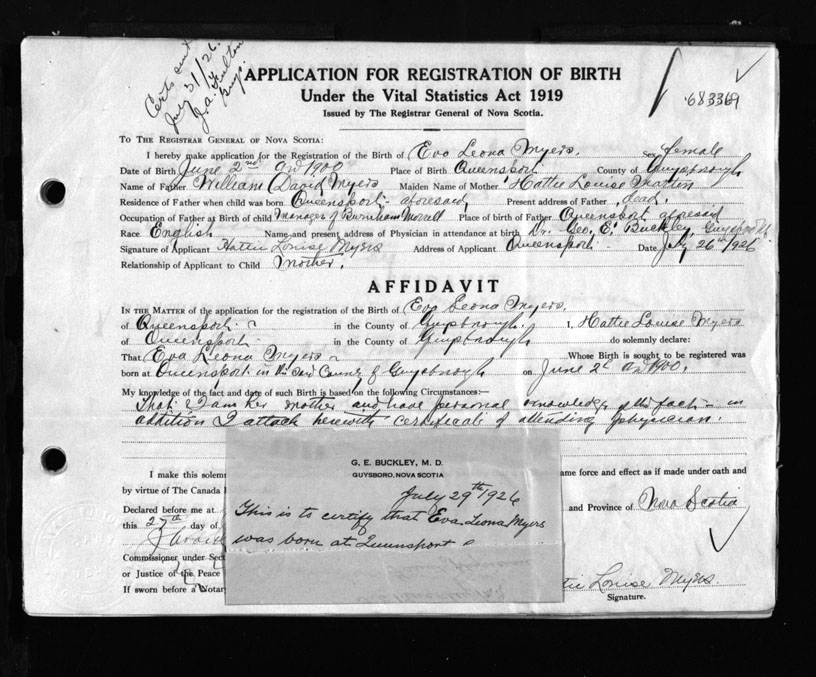 Certs sent
July 31/26.
J.A. Fulton
Guys.
683369
APPLICATION FOR REGISTRATION OF BIRTH
Under the Vital Statistics Act 1919
Issued by The Registrar General of Nova Scotia.
TO THE REGISTRAR GENERAL OF NOVA SCOTIA:
I hereby make application for the Registration of the Birth of Eva Leona Myers. Sex female
Date of Birth June 2nd AD 1900 Place of Birth Queensport County of Guysborough
Name of Father William David Myers Maiden Name of Mother Hattie Louise
Residence of Father when child was born Queensport aforesaid Present address of Father, dead.
Occupation of Father at Birth of child Manager of Burnham Morrell Place of birth of Father Queensport aforesaid
Race English Name and present address of Physician in attendance at birth Dr. Geo. E. Buckley, Guysboro
Signature of Applicant Hattie Louise Myers Address of Applicant Queensport Date July 26th 1926
Relationship of Applicant to Child Mother.
AFFIDAVIT
IN THE MATTER of the application for the registration of the Birth of Eva Leona Myers.
of Queensport in the County of Guysborough I, Hattie Louise Myers
of Queensport in the County of Guysborough do solemnly declare:
That Eva Leona Myers Whose Birth is sought to be registered was
born at Queensport in the said County of Guysborough on June 2d AD 1900.
My knowledge of the fact and date of such Birth is based on the following Circumstances:—
That I am her mother and have personal knowledge of the fact - in
addition I attach herewith certificate of attending physician.
G. E. BUCKLEY, M. D.
GUYSBORO, NOVA SCOTIA
July 29th 1926
This is to certify that Eva Leona Myers
was born at Queensport
I make this solemn same force and effect as if made under oath and
by virtue of The Canada
Declared before me at and Province of Nova Scotia
this 27th day of
Commissioner under Sec
or Justice of the Peace
If sworn before a Notar Louise Myers.
Signature.